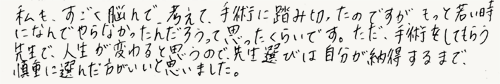 私も、すごく脳んで、考えて、手術に踏み切ったのですが、もっと若い時
になんでやらなかったんだろうって思ったくらいです。ただ、手術をしてもらう
先生で、人生が変わると思うので、先生選びは自分が納得するまで、
慎重に選んだ方がいいと思いました。